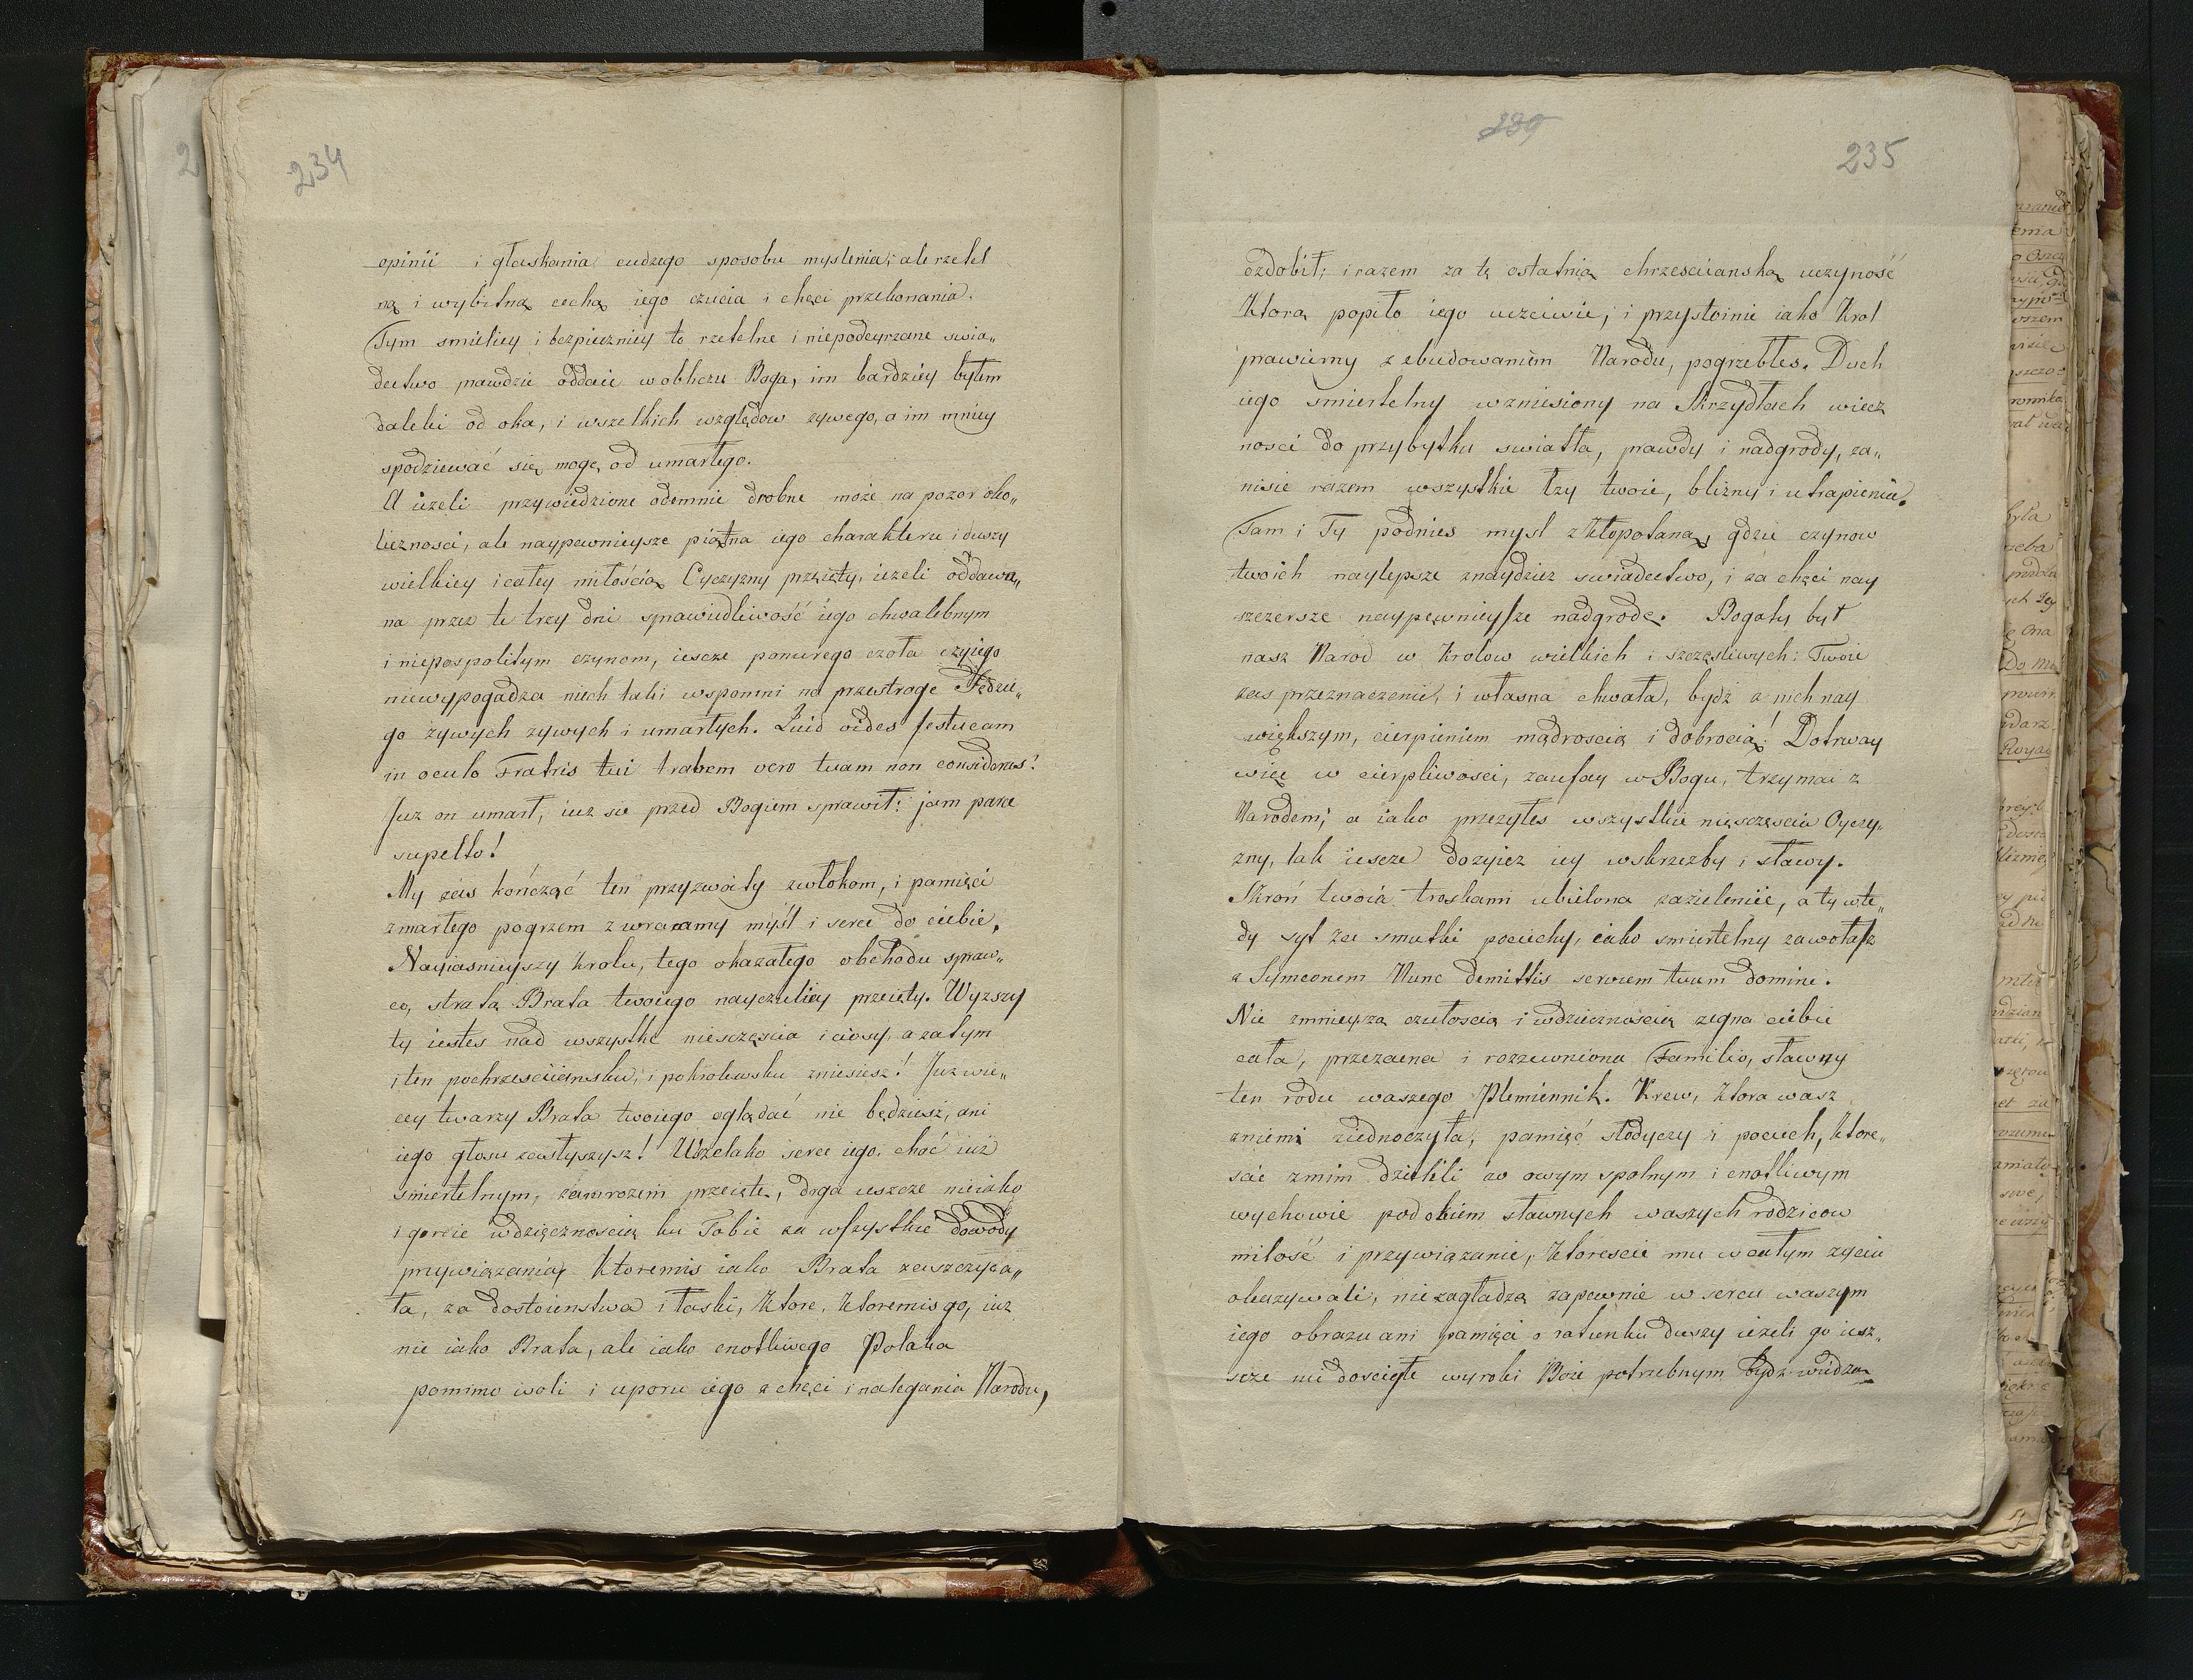 234
opinii i głaskania cudzego sposobu myslenia; ale rzetel
ną i wybitną cechą iego czucia i chęci przekonania.
Tym smieliey i bezpieczniey to rzetelne i niepodeyrzane swia„
dectwo prawdzie oddaie w obliczu Boga, im bardziey byłem
daleki od oka, i wszelkich względow zywego, a im mniey
spodziewać się mogę od umarłego.
A iezeli przywiedzione odemnie drobne może na pozor oko„
licznosci, ale naypewnieysze piątna iego charakteru i duszy
wielkiey i całey miłością Oyczyzny przeięty, iezeli oddawa„
na przez te trzy dni sprawiedliwość iego chwalebnym
i niepospolitym czynom, iescze ponurego czoła czyiego
niewypogadza niech taki wspomni na przestrogę Sędzie„
go żywych zywych i umarłych. Quid vides festucam
in oculo Fratris tui trabem vero tuam non consideras?
Juz on umarł, iuz sie przed Bogiem sprawił: jam parce
supelto!
My zas kończąć ten przyzwoity zwłokom, i pamięci
zmarłego pogrzem zwracamy myśl i serce do ciebie,
Nayiasnieyszy Krolu, tego okazałego obchodu spraw„
co, stratą Brata twoiego nayczuliey przeięty. Wyzszy
ty iestes nad wszystke niesczęscia i ciosy, a zatym
i ten pochrzesciiansku, i pokrolewsku zniesiesz! Juz wię„
cey twarzy Brata twoiego oglądać nie będziesz, ani
iego głosu zasłyszysz! Wszelako serce iego, choć iuż
smiertelnym, zamrozem przeięte, drga ieszcze nieiako
i goreie wdzięcznoscią ku Tobie za wszystkie dowody
przywiązania, Ktoremis iako Brata zaszczyca„
ła, za dostoienstwa i łaski, Ktore, Ktoremis go, iuz
nie iako Brata, ale iako cnotliwego Polaka
pomimo woli i uporu iego z chęci i nalegania Narodu,
239
235
ozdobił; i razem za tę ostatnią chrzesciianską uczyność
Ktorą popiło iego uczciwie, i przystoinie iako Krol
prawierny z zbudowaniem Narodu, pogrzebłes. Duch
iego smiertelny wzniesiony na Skrzydłach wiecz
nosci do przybytku swiatła, prawdy i nadgrody, za„
niesie razem wszystkie łzy twoie, blizny i utrapienia.
Tam i Ty podnies mysl zkłopotaną, gdzie czynow
twoich naylepsze znaydziez swiadectwo, i za chęci nay
szczersze naypewnieysze nadgrodę. Bogaty był
nasz Narod w Krolow wielkich i szczęsliwych: Twoie
zas przeznaczenie, i własna chwała, bydź z nich nay
większym, cierpieniem mądroscią i dobrocią! Dotrway
więc w cierpliwosci, zaufay w Bogu, trzymai z
Narodem, a iako przezyłes wszystkie niesczęscia Oyczy„
zny, tak iescze dozyiez iey wskrzezby i sławy.
Skroń twoia troskami ubielona zazielenieie, a ty wte„
dy syt za smutki pociechy, iako smiertelny zawołasz
z Symeonem Nunc demittis servum tuum domine.
Nie zmnieyszą czułoscią i wdziecznoscią zegna ciebie
cała, przezacna i rozzewniona Familio, sławny
ten rodu waszego Plemiennik. Krew, Ktora wasz
zniemi ziednoczyła, pamięć słodyczy i pociech, ktore„
scie znim dzielili w owym spolnym i cnotliwym
wychowie pod okiem sławnych waszych rodzicow
miłość i przywiązanie, Ktorescie mu w całym zyciu
okazywali, nie zagładzą zapewnie w sercu waszym
iego obrazu ani pamięci o ratunku duszy iezeli go iesz„
scze nie doscigłe wyroki Boże potrzebnym bydź widzą